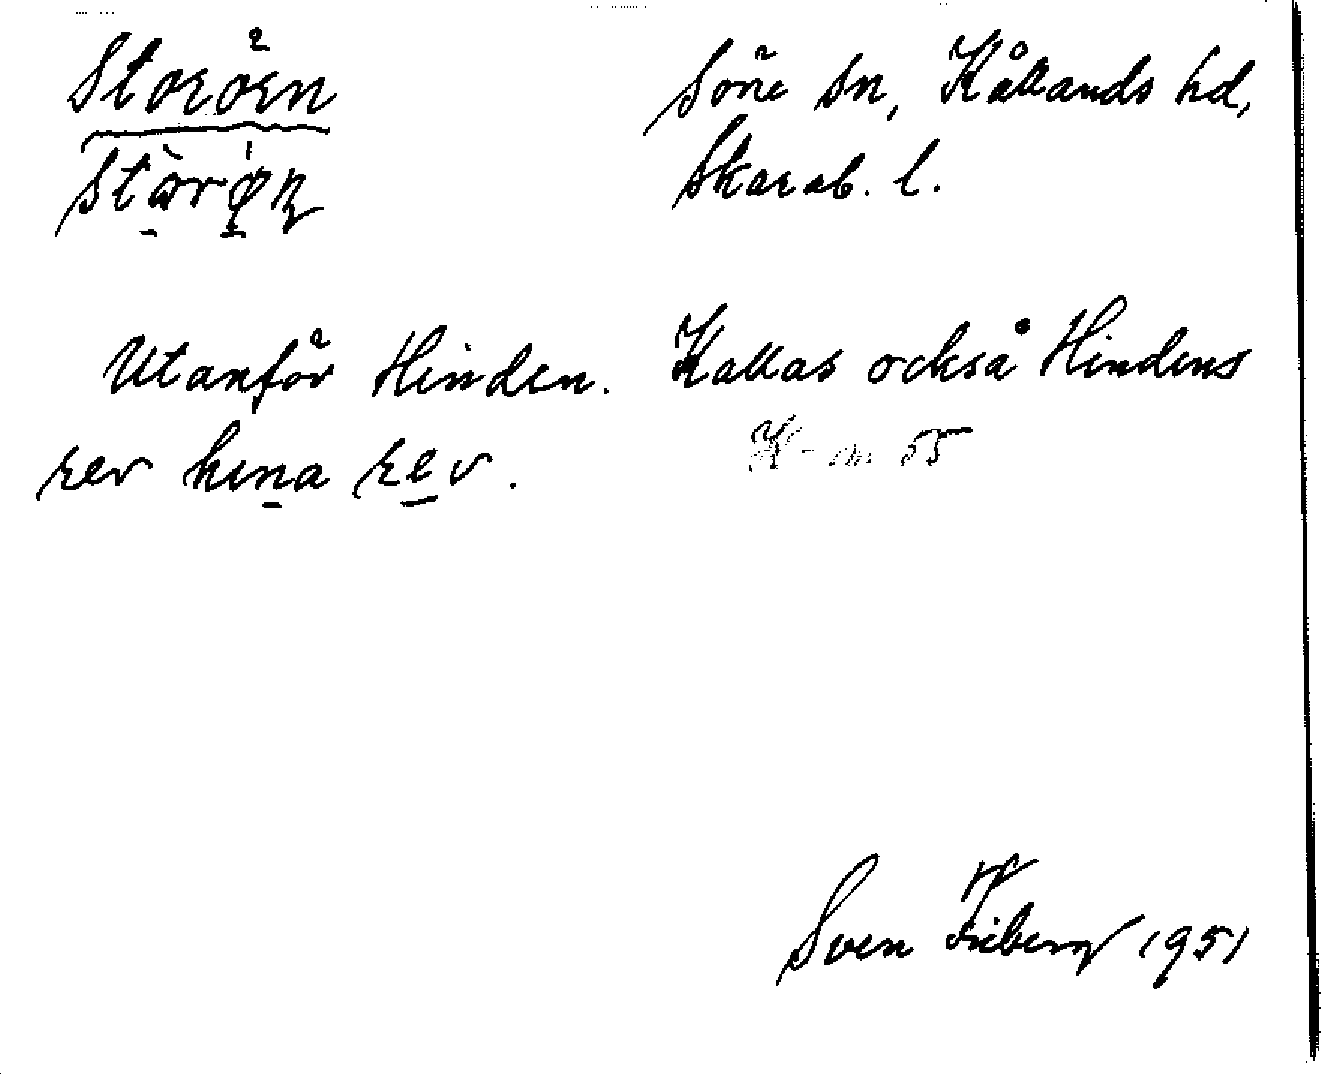 Storörn Söne sn, Kållands hd,
Skarab. l.
Utanför Hinden. Kallas också Hindens
rev hina rev.
Sven Friberg 1951